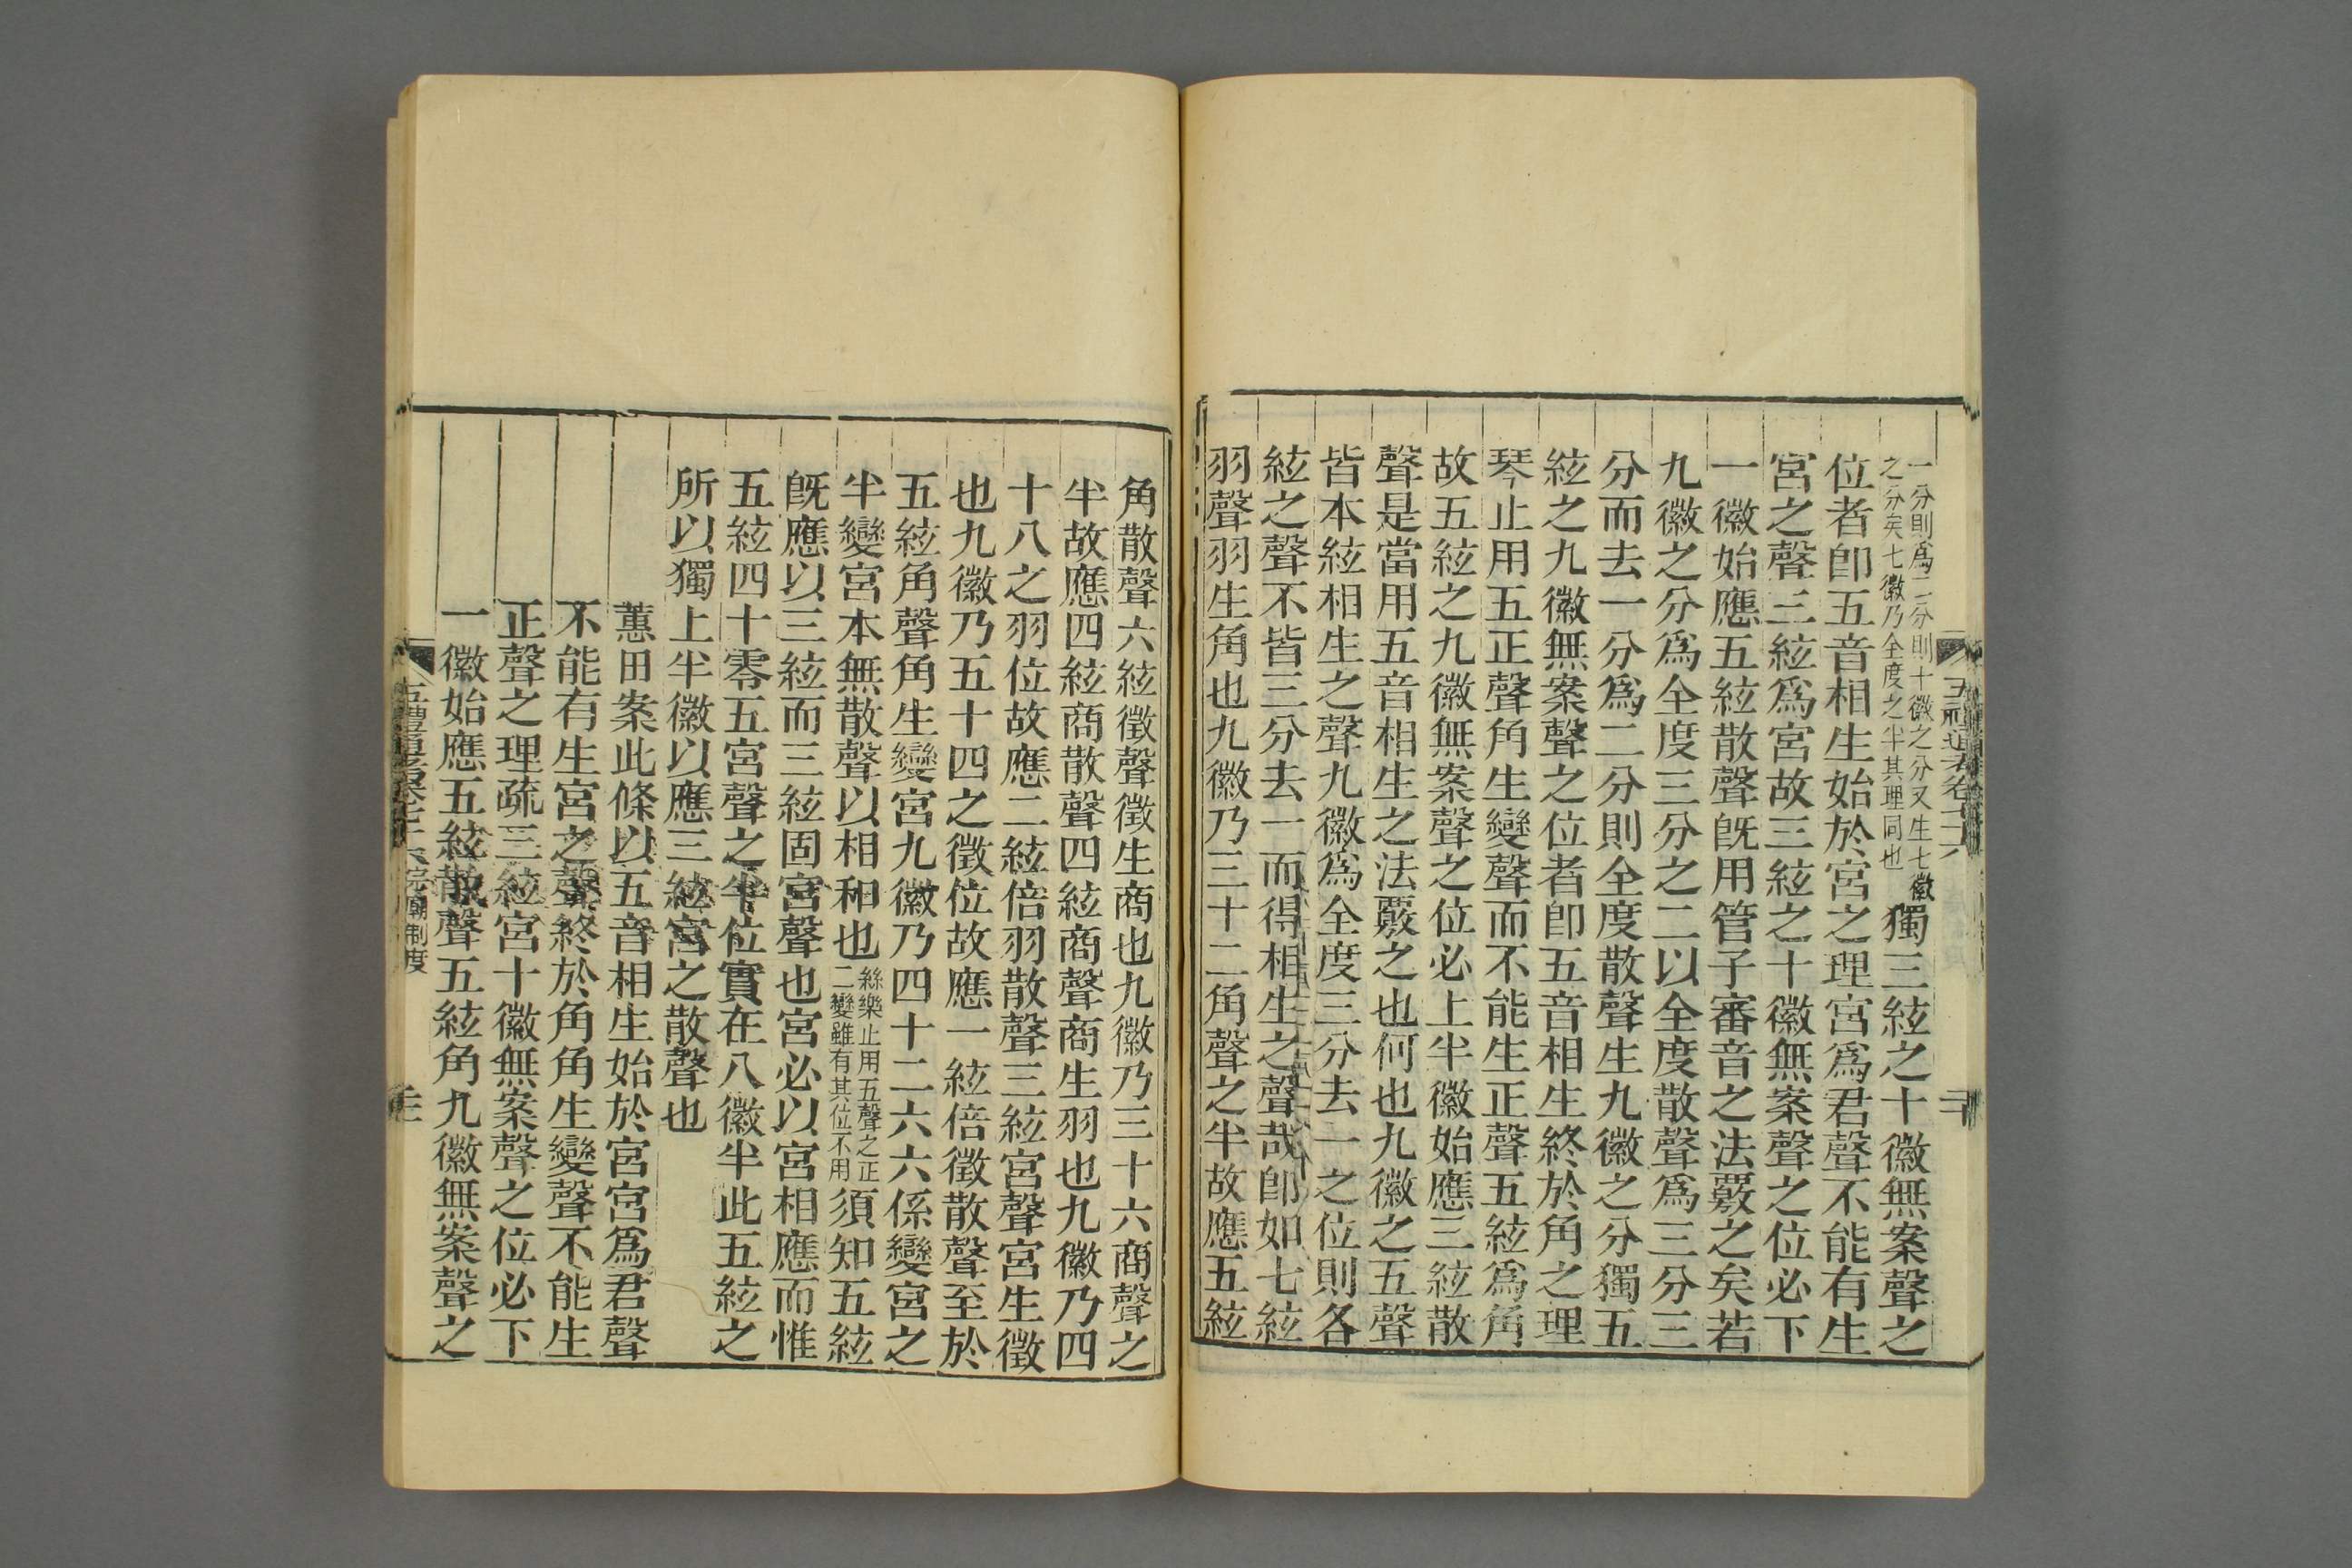 一分則爲二分則十徽之分又生七徽
之分矣七徽乃全度之半其理同也
獨三絃之十徽無案聲之
位者卽五音相生始於宮之理宮爲君聲不能有生
宮之聲三絃爲宮故三絃之十徽無案聲之位必下
一徽始應五絃散聲旣用管子審音之法覈之矣若
九徽之分爲全度三分之二以全度散聲爲三分三
分而去一分爲二分則全度散聲生九徽之分獨五
絃之九徽無案聲之位者卽五音相生終於角之理
琴止用五正聲角生變聲而不能生正聲五絃爲角
故五絃之九徽無案聲之位必上半徽始應三絃散
聲是當用五音相生之法覈之也何也九徽之五聲
皆本絃相生之聲九徽爲全度三分去一之位則各
絃之聲不皆三分去一而得相生之聲哉卽如七絃
羽聲羽生角也九徽乃三十二角聲之半故應五絃
角散聲六絃徵聲徵生商也九徽乃三十六商聲之
半故應四絃商散聲四絃商聲商生羽也九徽乃四
十八之羽位故應二絃倍羽散聲三絃宮聲宮生徵
也九徽乃五十四之徵位故應一絃倍徵散聲至於
五絃角聲角生變宮九徽乃四十二六六係變宮之
半變宮本無散聲以相和也
絲樂止用五聲之正
二變雖有其位不用
須知五絃
旣應以三絃而三絃固宮聲也宮必以宮相應而惟
五絃四十零五宮聲之半位實在八徽半此五絃之
所以獨上半徽以應三絃宮之散聲也
蕙田案此條以五音相生始於宮宮爲君聲
不能有生宮之聲終於角角生變聲不能生
正聲之理疏三絃宮十徽無案聲之位必下
一徽始應五絃散聲五絃角九徽無案聲之
宗廟制度